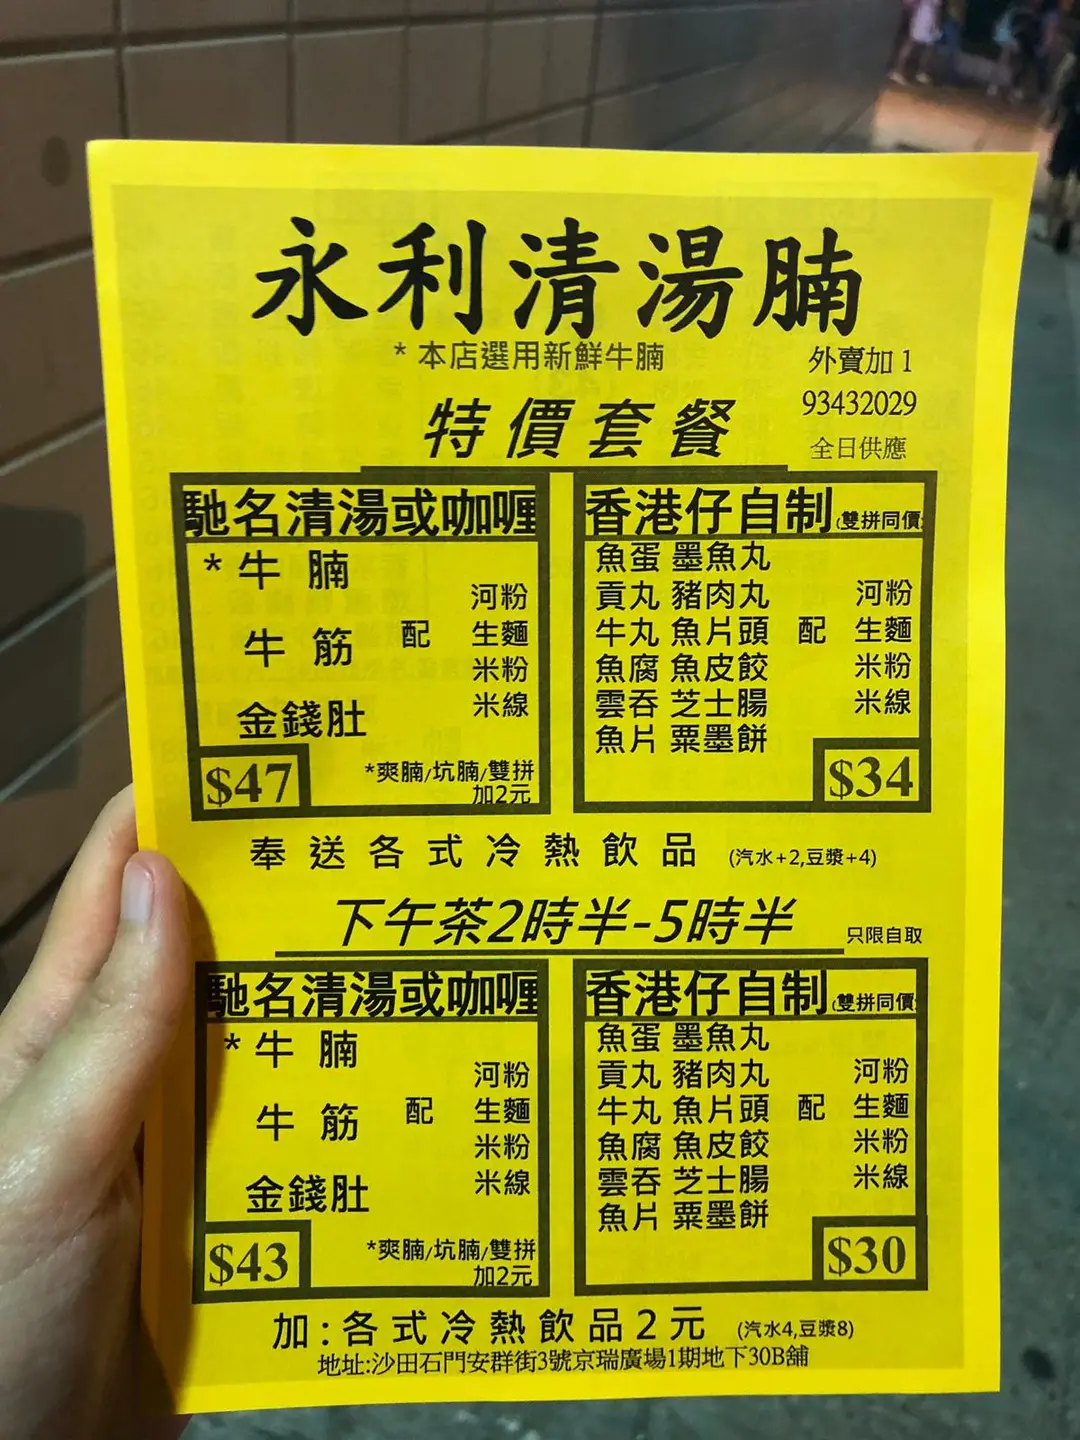 永利清湯腩
*本店選用新鮮牛腩
外賣加1
93432029
全日供應
特價套餐
馳名清湯或咖喱
*牛腩
牛筋
金錢肚
配
河粉
生麵
米粉
米線
$47
*爽腩/坑腩/雙拼
加2元
香港仔自制(雙拼同價)
魚蛋 墨魚丸
貢丸 豬肉丸
牛丸 魚片頭
魚腐 魚皮餃
雲吞 芝士腸
魚片 粟墨餅
配
河粉
生麵
米粉
米線
$34
奉送各式冷熱飲品 (汽水+2,豆漿+4)
下午茶2時半-5時半 只限自取
馳名清湯或咖喱
*牛腩
牛筋
金錢肚
配
河粉
生麵
米粉
米線
$43
*爽腩/坑腩/雙拼
加2元
香港仔自制(雙拼同價)
魚蛋 墨魚丸
貢丸 豬肉丸
牛丸 魚片頭
魚腐 魚皮餃
雲吞 芝士腸
魚片 粟墨餅
配
河粉
生麵
米粉
米線
$30
加:各式冷熱飲品2元 (汽水4,豆漿8)
地址:沙田石門安群街3號京瑞廣場1期地下30B舖